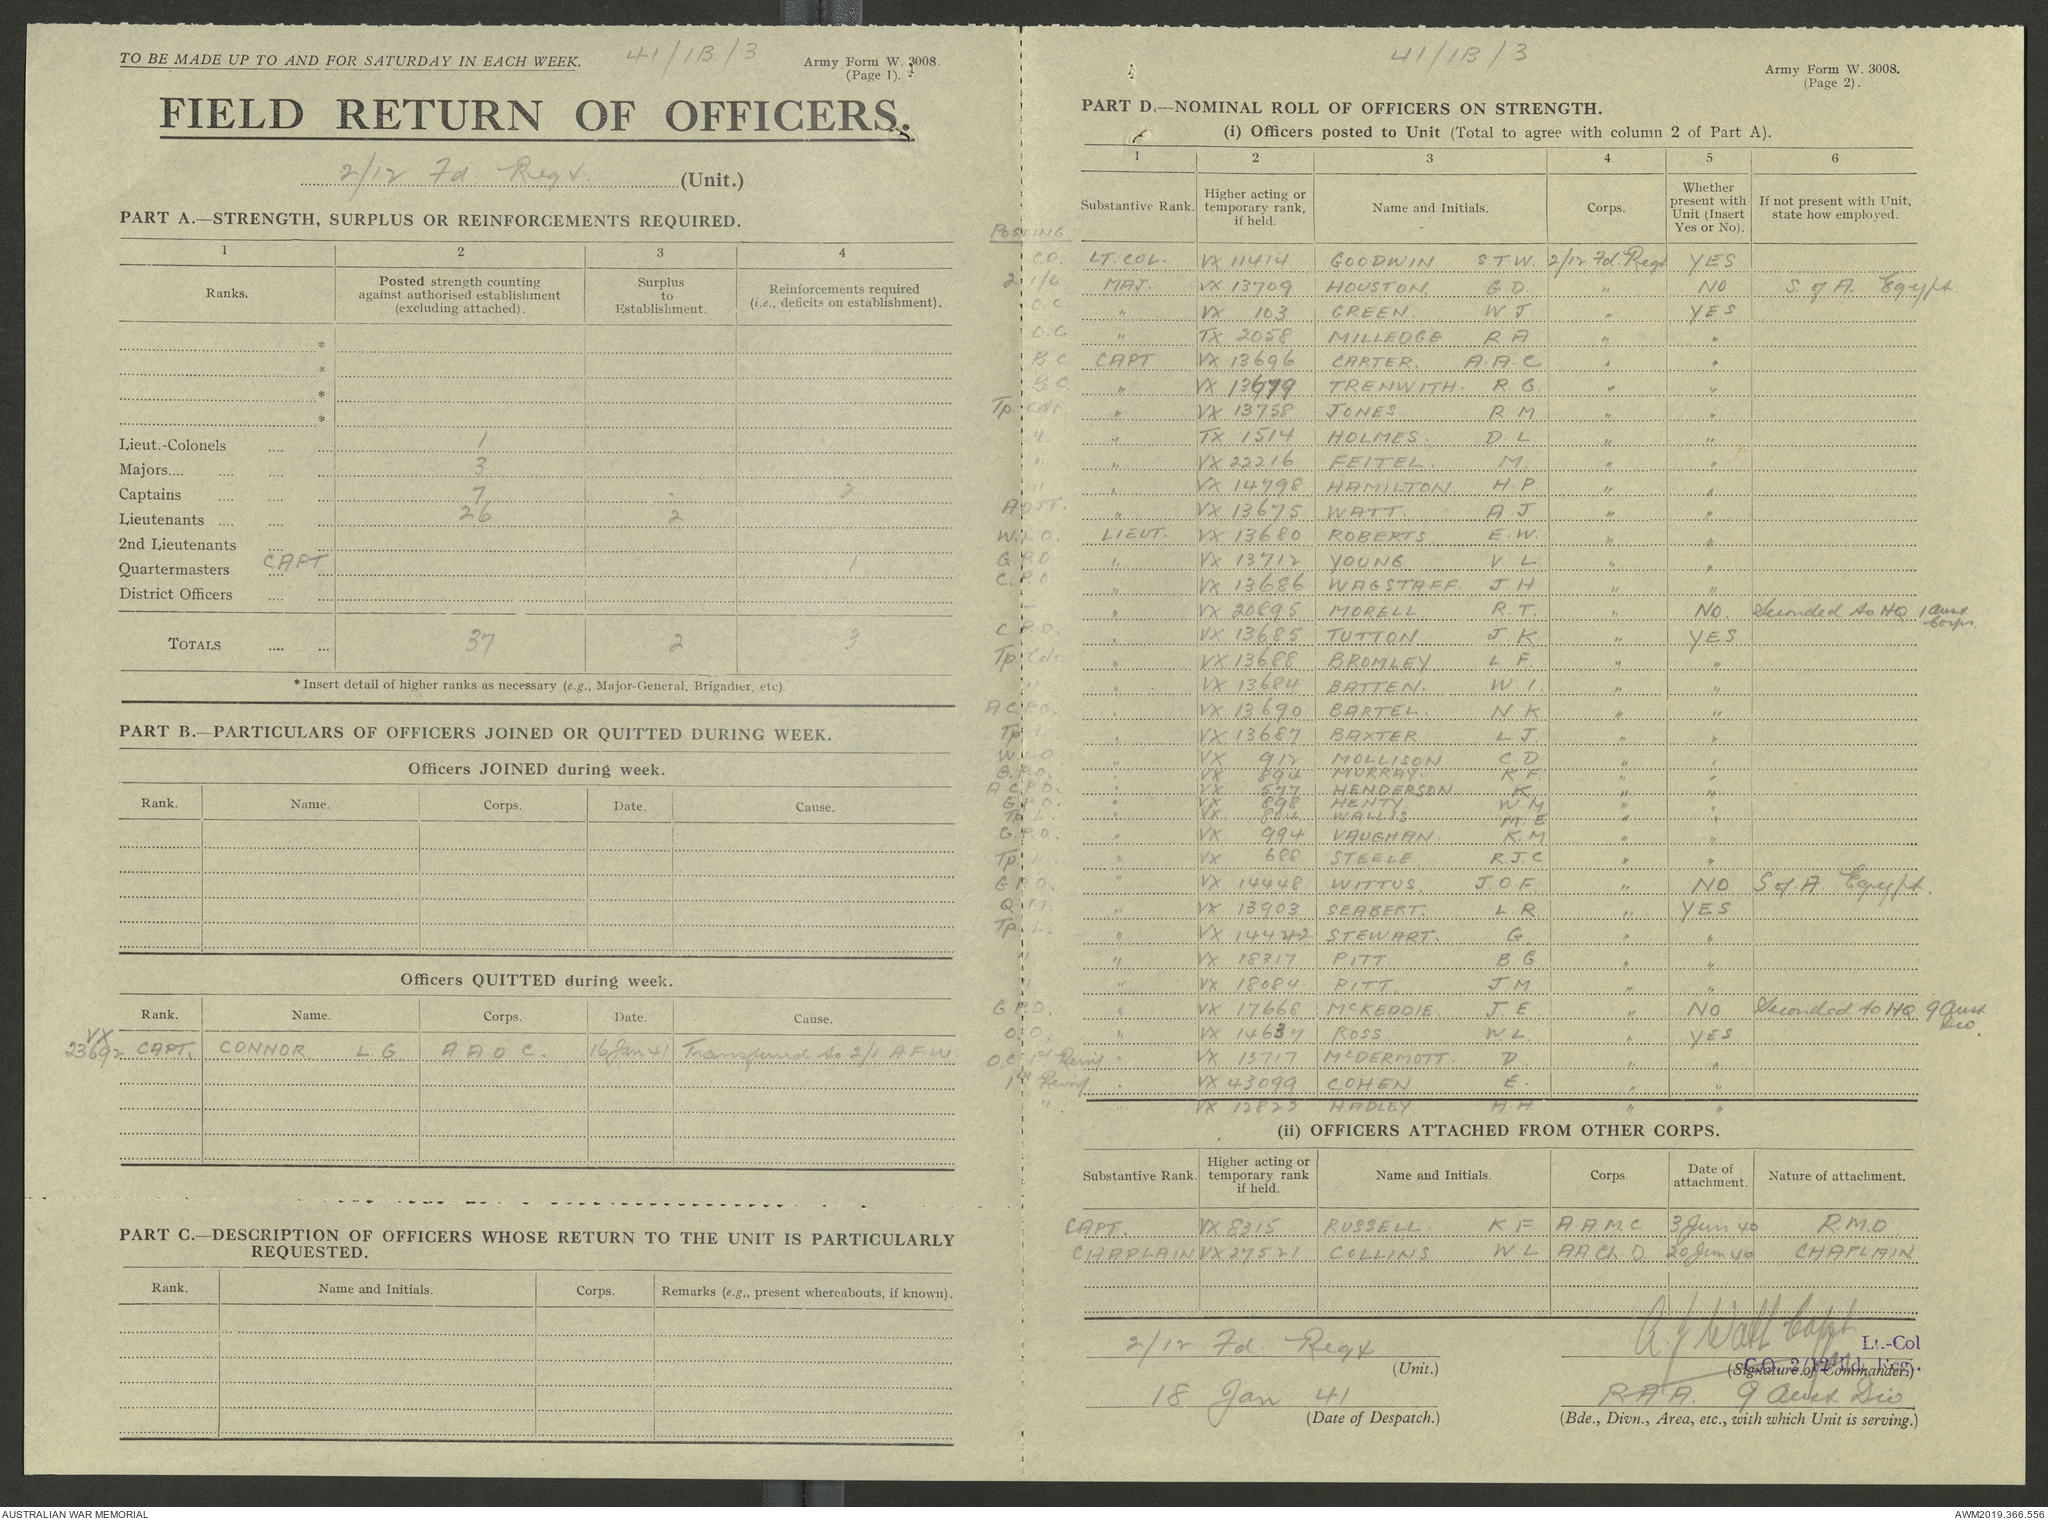 TO BE MADE UP TO AND FOR SATURDAY IN EACH WEEK. 41/1B/3 Army Form W. 3008.
(Page 1).
FIELD RETURN OF OFFICERS.
2/12 Fd. Regt. (Unit.)
PART A.—STRENGTH, SURPLUS OR REINFORCEMENTS REQUIRED.
1 2 3 4
Ranks. Posted strength counting against authorised establishment (excluding attached). Surplus to Establishment. Reinforcements required (i.e., deficits on establishment).
*
*
*
*
Lieut.-Colonels 1
Majors 3
Captains 7 - 2
Lieutenants 26 2
2nd Lieutenants
Quartermasters CAPT 1
District Officers
TOTALS 37 2 3
* Insert detail of higher ranks as necessary (e.g., Major-General, Brigadier, etc).
PART B.—PARTICULARS OF OFFICERS JOINED OR QUITTED DURING WEEK.
Officers JOINED during week.
Rank. Name. Corps. Date. Cause.
Officers QUITTED during week.
Rank. Name. Corps. Date. Cause.
VX 23692 CAPT. CONNOR L G A A O C. 16 Jan 41 Transferred to 2/1 A.F.W.
PART C.—DESCRIPTION OF OFFICERS WHOSE RETURN TO THE UNIT IS PARTICULARLY
REQUESTED.
Rank. Name and Initials. Corps. Remarks (e.g., present whereabouts, if known).
41/1B/3 Army Form W. 3008.
(Page 2).
PART D.—NOMINAL ROLL OF OFFICERS ON STRENGTH.
(i) Officers posted to Unit (Total to agree with column 2 of Part A).
1 2 3 4 5 6
Substantive Rank. Higher acting or temporary rank, if held. Name and Initials. Corps. Whether present with Unit (Insert Yes or No). If not present with Unit, state how employed.
POSTING
C.O. LT. COL. VX 11414 GOODWIN S T W. 2/12 Fd. Regt YES
2 i/c MAJ. VX 13709 HOUSTON G D. " NO S. of A. Egypt
O.C. " VX 103 GREEN. W J " YES
O.C " TX 2058 MILLEDGE R A " "
B C CAPT VX 13696 CARTER. A. A. C " "
B.C. " VX 13679 TRENWITH. R. G. " "
Tp Cdr. " VX 13758 JONES R M " "
" " TX 1514 HOLMES. D L " "
" " VX 22216 FEITEL. M. " "
" " VX 14798 HAMILTON H. P " "
ADJT. " VX 13675 WATT. A J " "
W.L.O. LIEUT. VX 13680 ROBERTS E. W. " "
G.P.O " VX 13712 YOUNG V L " "
C.P.O " VX 13686 WAGSTAFF. J H " "
— " VX 20895 MORELL R T. " NO. Seconded to HQ 1 Aust Corps
C.P.O. " VX 13685 TUTTON J. K " YES
Tp Cdr " VX 13688 BROMLEY L F. " "
" " VX 13684 BATTEN. W I. " "
A C.P.O. " VX 13690 BARTEL. N K " "
Tp L " VX 13687 BAXTER L J. " "
W L O " VX 912 MOLLISON C. D " "
G.P.O. " VX 894 MURRAY. K F. " "
A C.P.O. " VX 577 HENDERSON K " "
G.P.O. " VX 898 HENTY W M " "
Tp L. " VX 804 WALLIS M E " "
G.P.O. " VX 994 VAUGHAN K. M " "
Tp L. " VX 688 STEELE R. J. C " "
G P.O. " VX 14448 WITTUS. J. O F. " NO S of A. Egypt.
Q M. " VX 13903 SEABERT. L R " YES
Tp L. " VX 14442 STEWART. G. " "
" " VX 18317 PITT. B G " "
" " VX 18084 PITT J M " "
G P.O. " VX 17668 McKEDDIE J. E " NO Seconded to HQ 9 Aust Div.
O.O. " VX 14637 ROSS W L. " YES
O. C 1st Reinf " VX 13717 McDERMOTT. D " "
1st Reinf " VX 43099 COHEN E. " "
" " VX 12823 HADLEY A H " "
(ii) OFFICERS ATTACHED FROM OTHER CORPS.
Substantive Rank. Higher acting or temporary rank if held. Name and Initials. Corps Date of attachment. Nature of attachment.
CAPT. VX 8315 RUSSELL. K F. A A M C 3 Jun 40 R. M. O
CHAPLAIN VX 27521 COLLINS W L A A Ch. D. 20 Jun 40 CHAPLAIN
2/12 Fd. Regt A. J Watt Capt
(Unit.) Lt.-Col
C.O. 2/12 Fd. Reg.
(Signature of Commander.)
18 Jan 41 R A A. 9 Aust Div
(Date of Despatch.) (Bde., Divn., Area, etc., with which Unit is serving.)
AUSTRALIAN WAR MEMORIAL AWM2019.366.556